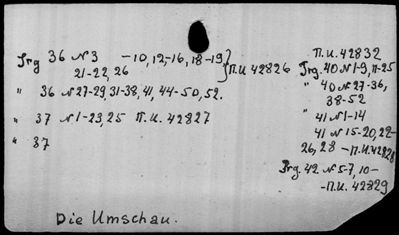 Jrg 36 № 3 —10, 12,-16, 18-19
21-22, 26 } П.И. 42826
" 36 № 27-29, 31-38, 41, 44-50, 52.
" 37 № 1-23, 25 П.И. 42827
" 37
П.И. 42832
Jrg. 40 № 1-9, 11-25
" 40 № 27-36,
38-52
" 41 № 1-14
41 № 15-20, 22-
26, 28 — П.И. 42828
Jrg. 42 № 5-7, 10-
-П.И. 42829
Die Umschau.